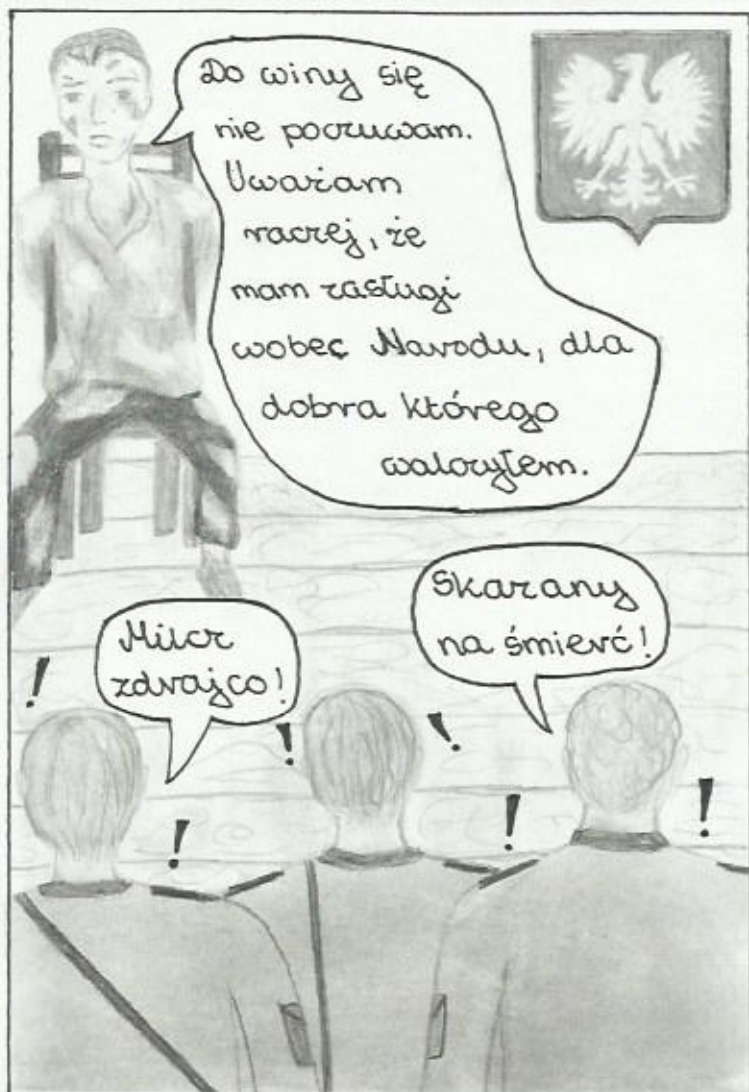 Do winy się
nie poczuwam.
Uważam
raczej, że
mam zasługi
wobec Narodu, dla
dobra którego
walczyłem.
Milcz
zdrajco!
Skazany
na śmierć!